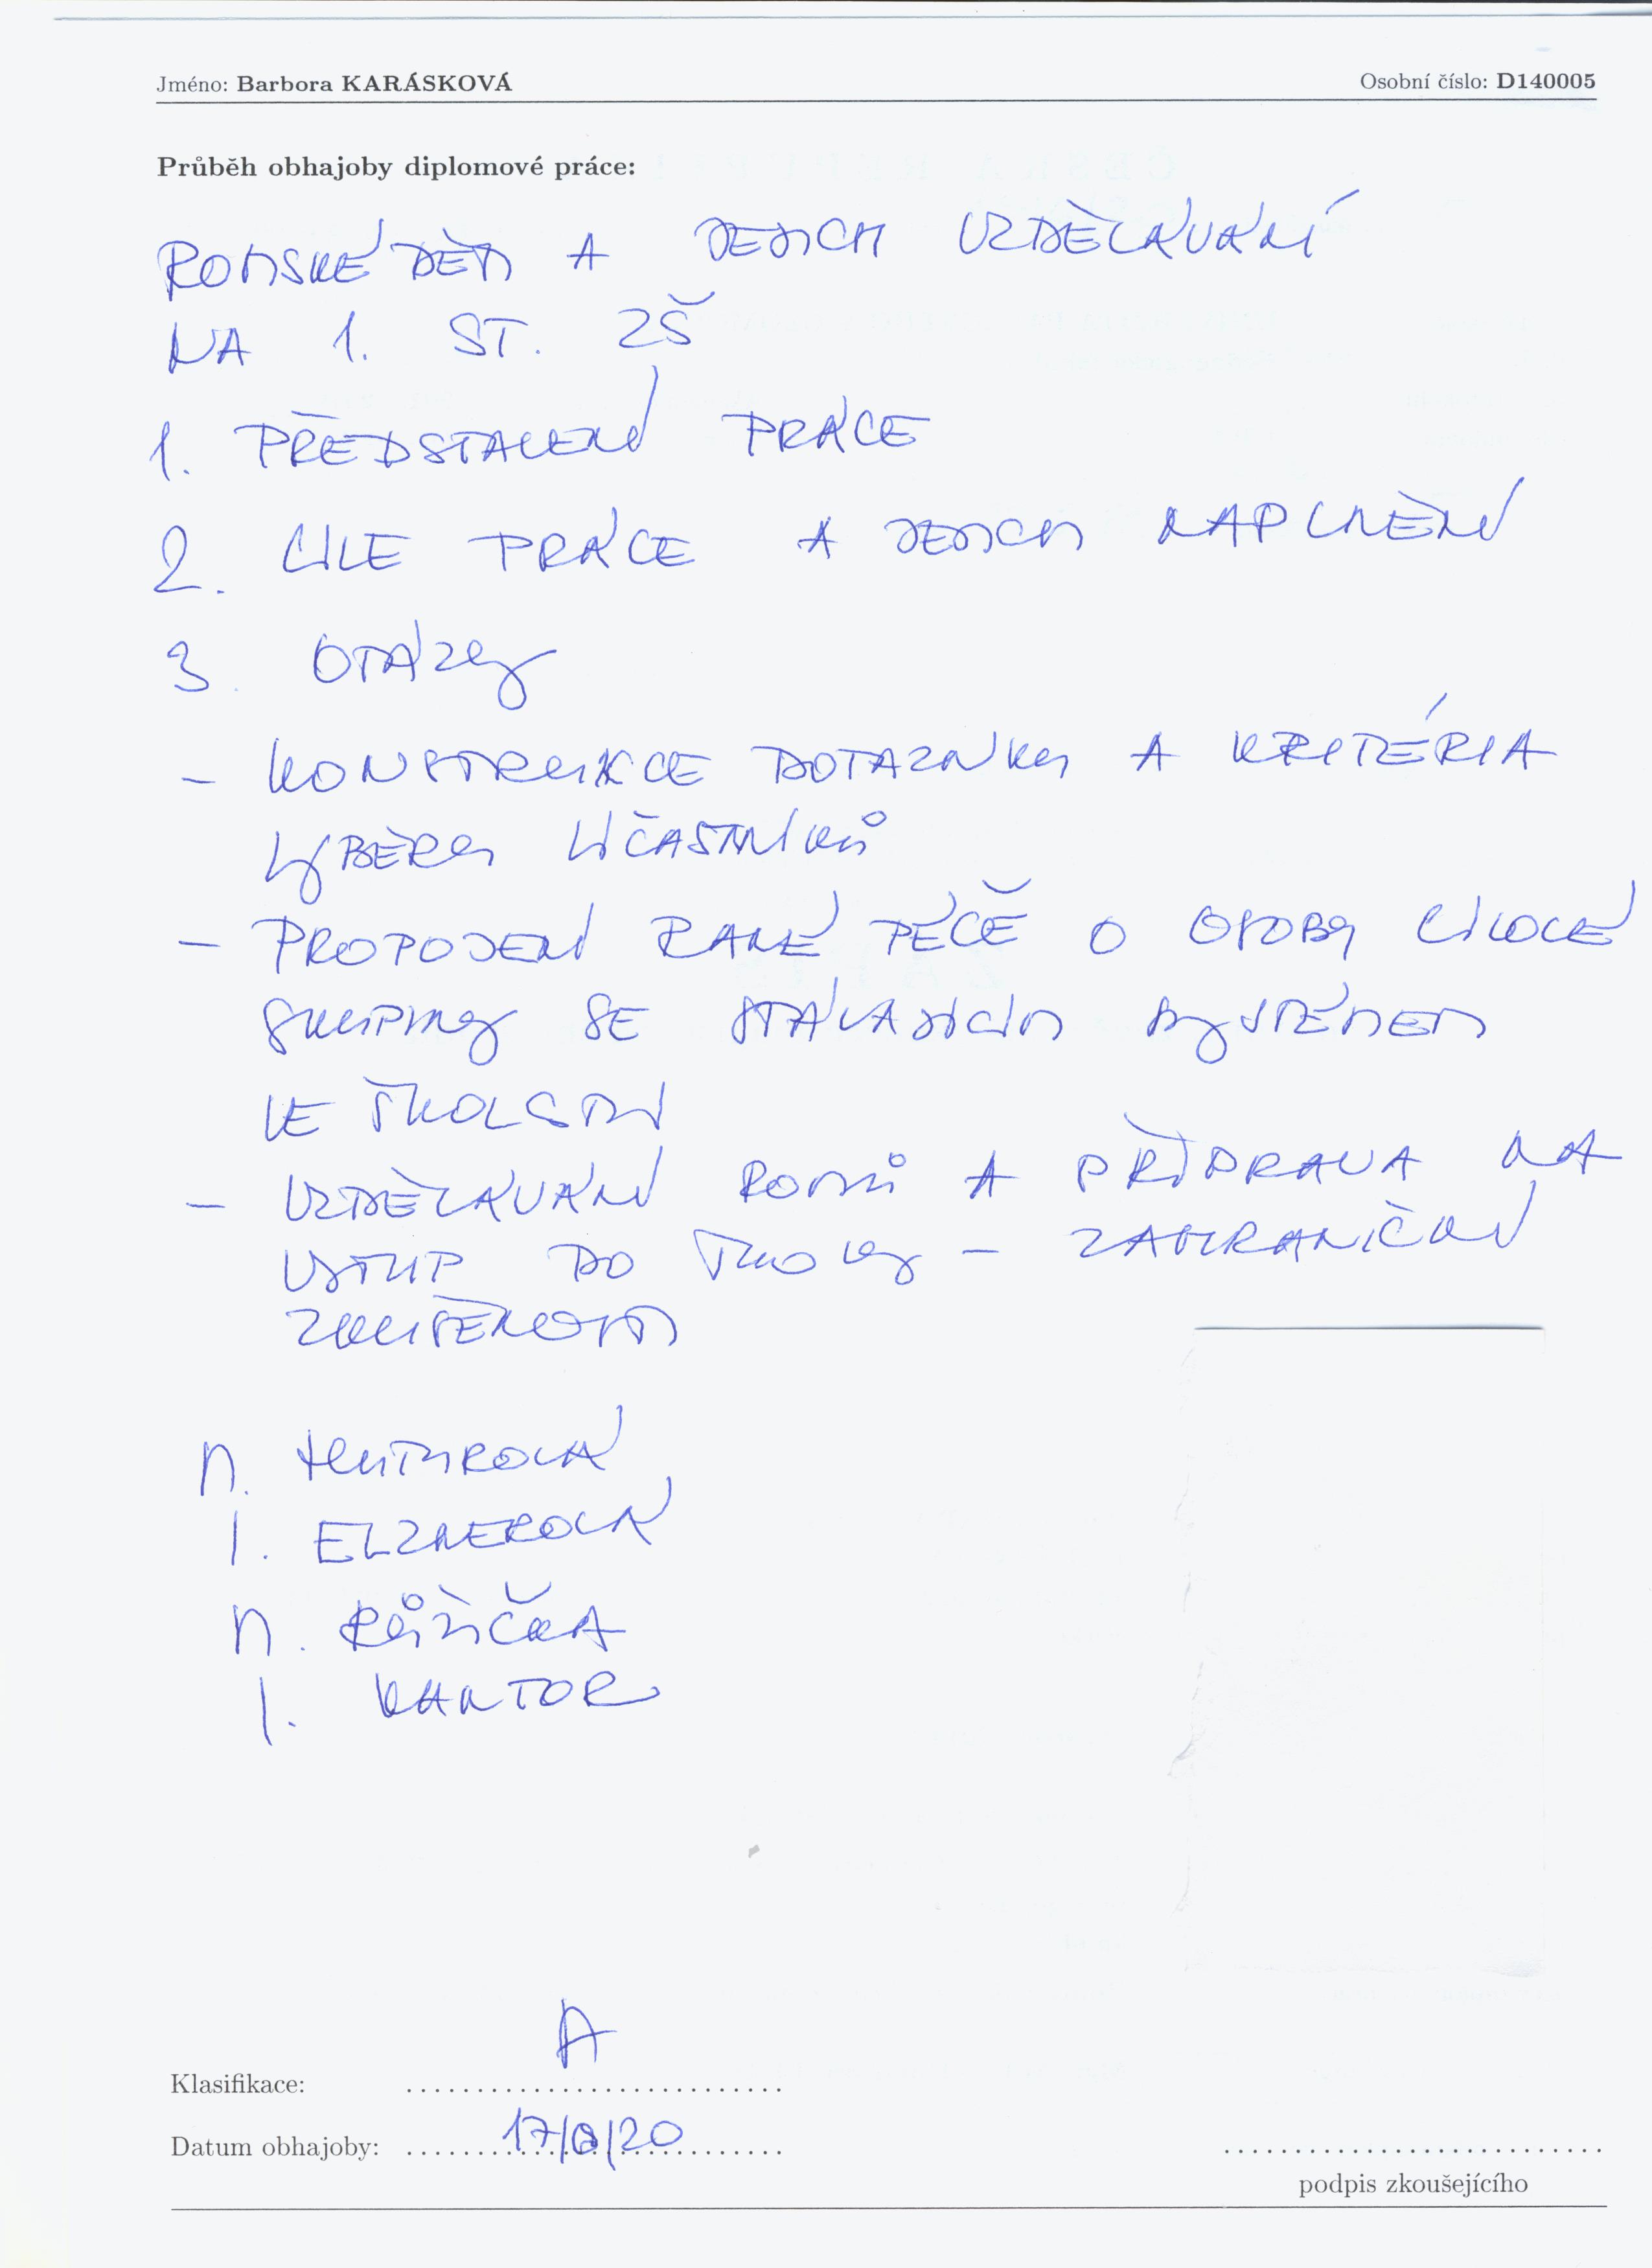 Jméno: Barbora KARÁSKOVÁ Osobní číslo: D140005
Průběh obhajoby diplomové práce:
ROMSKÉ DĚTI A JEJICH VZDĚLÁVÁNÍ
NA 1. ST. ZŠ
1. PŘEDSTAVENÍ PRÁCE
2. CÍLE PRÁCE A JEJICH NAPLNĚNÍ
3. OTÁZKY
- KONSTRUKCE DOTAZNÍKU A KRITÉRIA
VÝBĚRU ÚČASTNÍKŮ
- PROPOJENÍ RANÉ PÉČE O OSOBY CÍLOVÉ
SKUPINY SE STÁVAJÍCÍM SYSTÉMEM
VE ŠKOLSTVÍ
- VZDĚLÁVÁNÍ ROMŮ A PŘÍPRAVA NA
VSTUP DO ŠKOLY - ZAHRANIČNÍ
ZKUŠENOSTI
M.
J. ELZNEROVÁ
M. RŮŽIČKA
J. KANTOR
A
Klasifikace:
Datum obhajoby: 17/8/20
podpis zkoušejícího